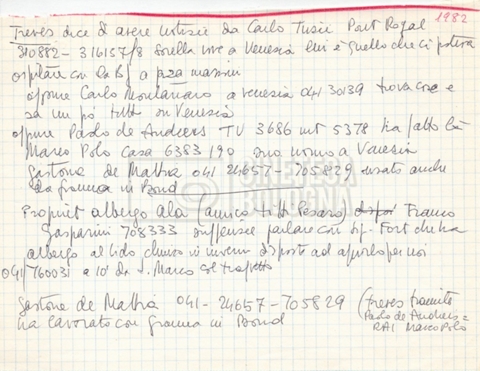 1982
Treves dice di avere notizie da Carlo Tusie Port Royal
310882 - 316157/8 sorella vive a Venezia lui è quello che ci poteva
ospitare con la Bj a p.za mazzini
oppure Carlo Montanaro a venezia 041 30139 trova case e
sa un pò tutto su Venezia
oppure Paolo de Andreis TV 3686 int 5378 ha fatto la
Marco Polo Casa 6383190 suo uomo a Venezia
Gastone de Mattia 041 24657 - 705829 usato anche
da gramma in Bond
Propriet albergo ala (amico Pesaro) Franco
Gasparini 708333 parlare con sig. Forte che ha
albergo al lido chiuso in inverno disposto ad aprirlo per noi
041/760031 a 10' da S. Marco col traghetto
Gastone de Mattia 041 - 24657 - 705829 (treves tramite
ha lavorato con gramma in Bond Paolo de Andreis e
RAI Marco Polo
CINETECA
BOLOGNA